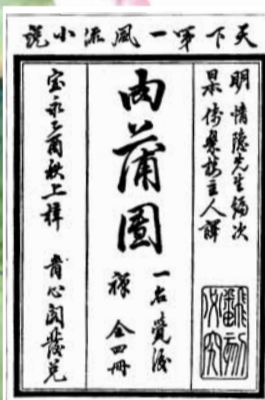 天下第一風流小説
明 情隱先生編次
日本 倚翠楼主人譯
肉蒲團
一名覺後
禅 全四冊
翻刻
必究
宝永乙酉秋上梓 青心閣發兌